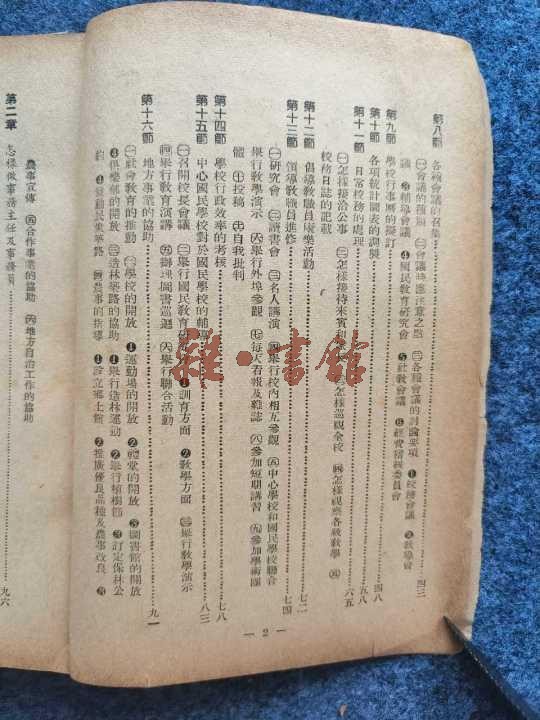 第八節　各種會議的召集……四三
㊀會議的種類　㊁會議時應注意之點　㊂各種會議的討論要項　❶校務會議　❷教學會
議　❸輔導會議　❹國民教育研究會　❺社教會議　❻經費稽核委員會
第九節　學校行事曆的擬訂……四八
第十節　各項統計圖表的調製……五八
第十一節　日常校務的處理……六五
㊀怎樣接洽公事　㊁怎樣接待來賓和　㊂怎樣巡視全校　㊃怎樣視察各級教學　㊄
校務日誌的記載
第十二節　倡導教職員康樂活動……七二
第十三節　領導教職員進修……七四
㊀研究會　㊁讀書會　㊂名人講演　㊃舉行校內相互參觀　㊄中心學校和國民學校聯合
舉行教學演示　㊅舉行外埠參觀　㊆每天看報及雜誌　㊇參加短期講習　㊈參加學術團
體　㊉投稿　自我批判
第十四節　學校行政效率的考核……七八
第十五節　中心國民學校對於國民學校的輔導……八三
㊀召開校長會議　㊁舉行國民教育研　❶訓育方面　❷教學方面　㊂舉行教學演示
㊃舉行教育演講　㊄辦理圖書巡迴　㊅舉行聯合活動
第十六節　地方事業的協助……九一
㊀社會教育的推動　㊁學校的開放　❶運動場的開放　❷禮堂的開放　❸圖書館的開放
❹俱樂部的開放　㊂造林築路的協助　❶舉行造林運動　❷舉行植樹節　❸訂定保林公
約　❹發動民衆築路　㊃農事的指導　❶設立鄉土館　❷推廣優良品種及農事改良　❸
農事宣傳　㊄合作事業的協助　㊅地方自治工作的協助
第二章　怎樣做事務主任及事務員……九六
— 2 —
雜·書館